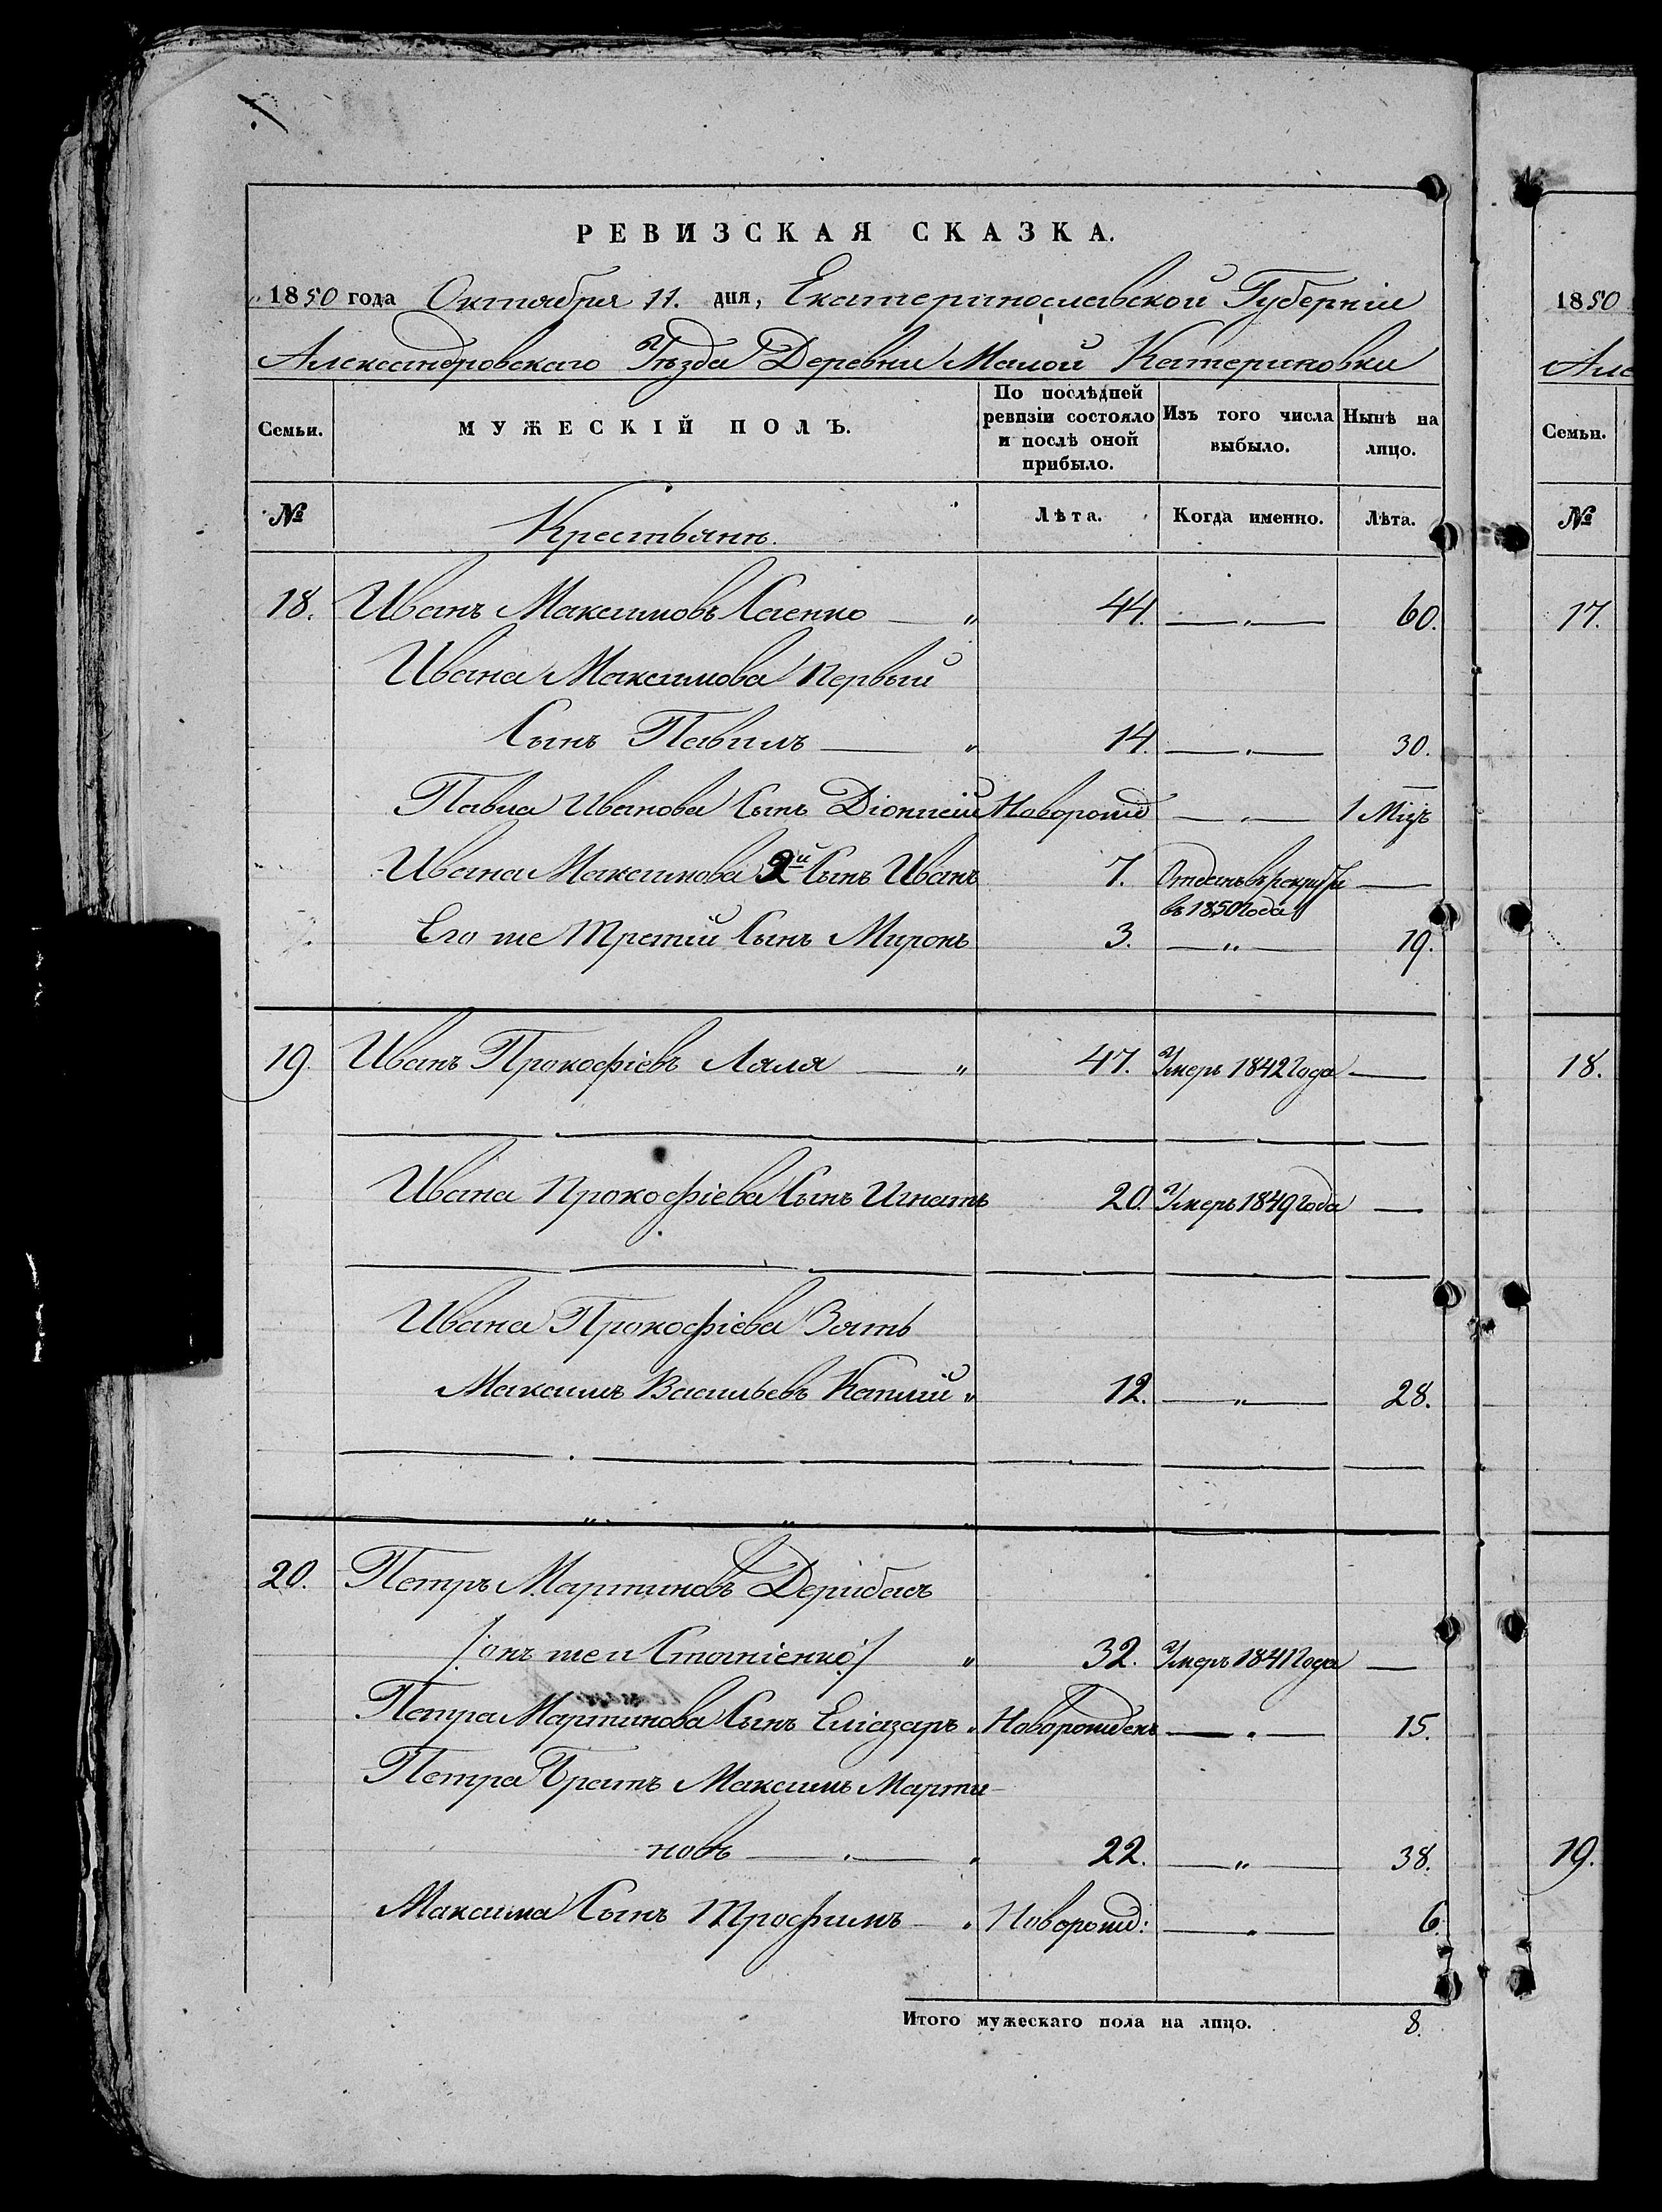 РЕВИЗСКАЯ СКАЗКА.
1850 года Октября 11. дня, Екатеринославской Губерніи
1850
Александровскаго Уѣзда Деревни Малой Катериновки
Але
Семьи. МУЖЕСКІЙ ПОЛЪ. По послѣдней ревизіи состояло и послѣ оной прибыло. Изъ того числа выбыло. Нынѣ на лицо.
Семьи.
№ Крестьянъ. Лѣта. Когда именно. Лѣта.
№
18. Иванъ Максимовъ Саенко — „ 44. — „ — 60.
17.
Ивана Максимова Первый
Сынъ Павилъ — „ 14. — „ — 30.
Павла Иванова Сынъ Діонисій Новорожд — „ — 1 Мцъ
Ивана Максимова 2й Сынъ Иванъ 7. Отданъ въ рекруты —
въ 1850 года
Его же Третій Сынъ Миронъ 3. — „ — 19.
19. Иванъ Прокофіевъ Ляля — „ 47. Умеръ 1842 Года —
18.
Ивана Прокофіева Сынъ Игнатъ 20. Умеръ 1849 года —
Ивана Прокофіева Зять
Максимъ Васильевъ Каплій „ 12. — „ — 28.
20. Петръ Мартиновъ Дерибасъ
/:онъ же и Стогніенко:/ „ 32. Умеръ 1841 Года —
Петра Мартинова Сынъ Еліазаръ „ Новорожденъ — „ — 15.
Петра Братъ Максимъ Марти-
новъ — „ — „ 22. — „ — 38.
19.
Максима Сынъ Трофимъ — „ Новорожд: — „ — 6.
Итого мужескаго пола на лицо. 8.